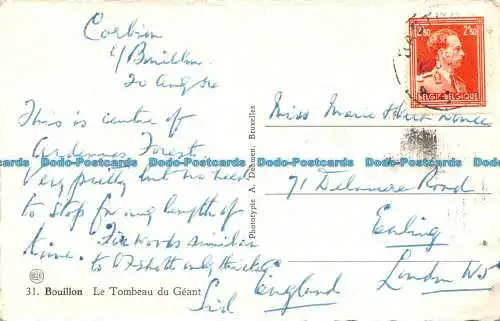 Corbion
s/Bouillon
20 Aug 54
This is centre of
Ardennes Forest
Very pretty but no need
to stop for any length of
time. Fir woods similar
to but only thicker
Sid
31. Bouillon Le Tombeau du Géant
Phototypie A. Dohmen, Bruxelles
2F50 2F50
BELGIE-BELGIQUE
Miss Marie
71 Delamere Road
Ealing
London W5
England
Dodo-Postcards.com Dodo-Postcards.com Dodo-Postcards.com Dodo-Postcards.com